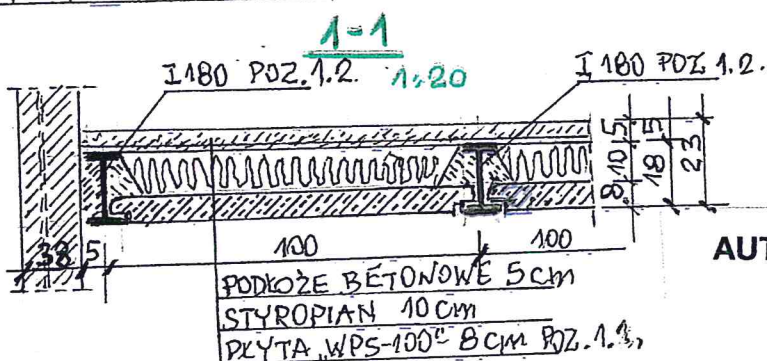 1-1
1:20
I 180 POZ.1.2.
I 180 POZ.1.2.
5
10
8
5
18
23
38
5
100
100
AUT
PODŁOŻE BETONOWE 5cm
STYROPIAN 10cm
PŁYTA „WPS-100" 8cm POZ.1.1.